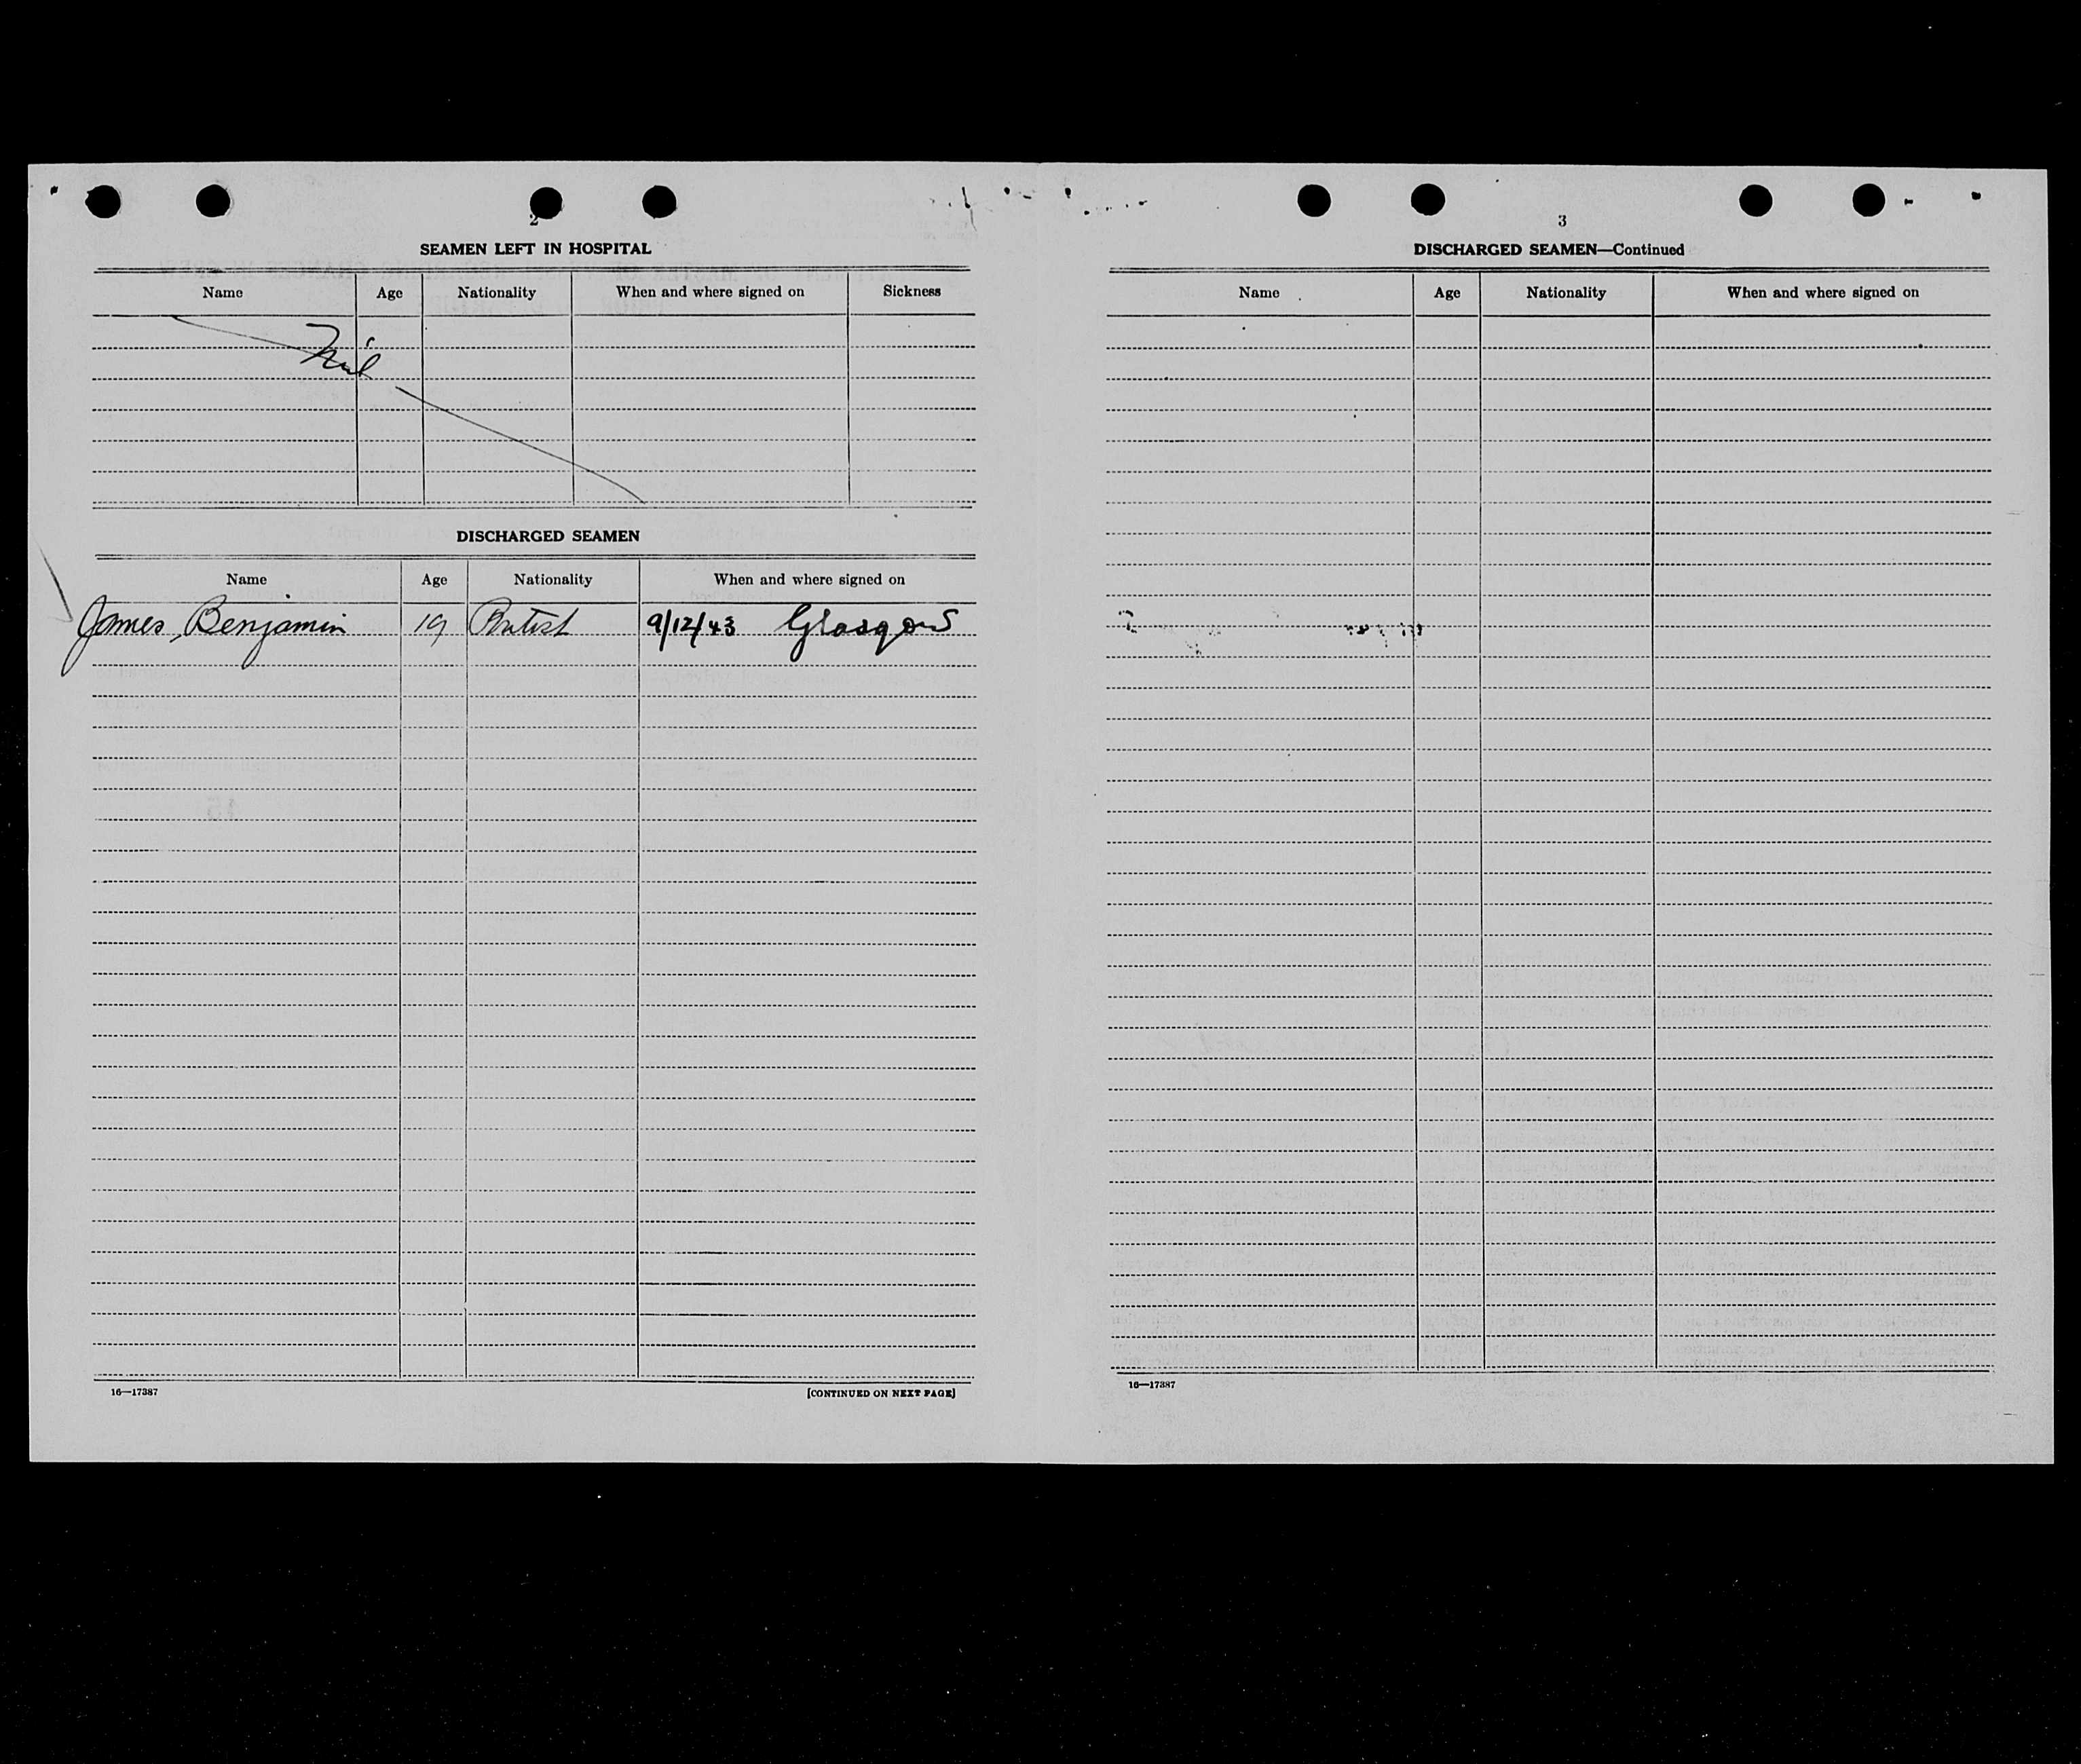 2
SEAMEN LEFT IN HOSPITAL
Name Age Nationality When and where signed on Sickness
Nil
DISCHARGED SEAMEN
Name Age Nationality When and where signed on
James, Benjamin 19 British 9/12/43 Glasgow
16—17387 [CONTINUED ON NEXT PAGE]
3
DISCHARGED SEAMEN—Continued
Name Age Nationality When and where signed on
16—17387